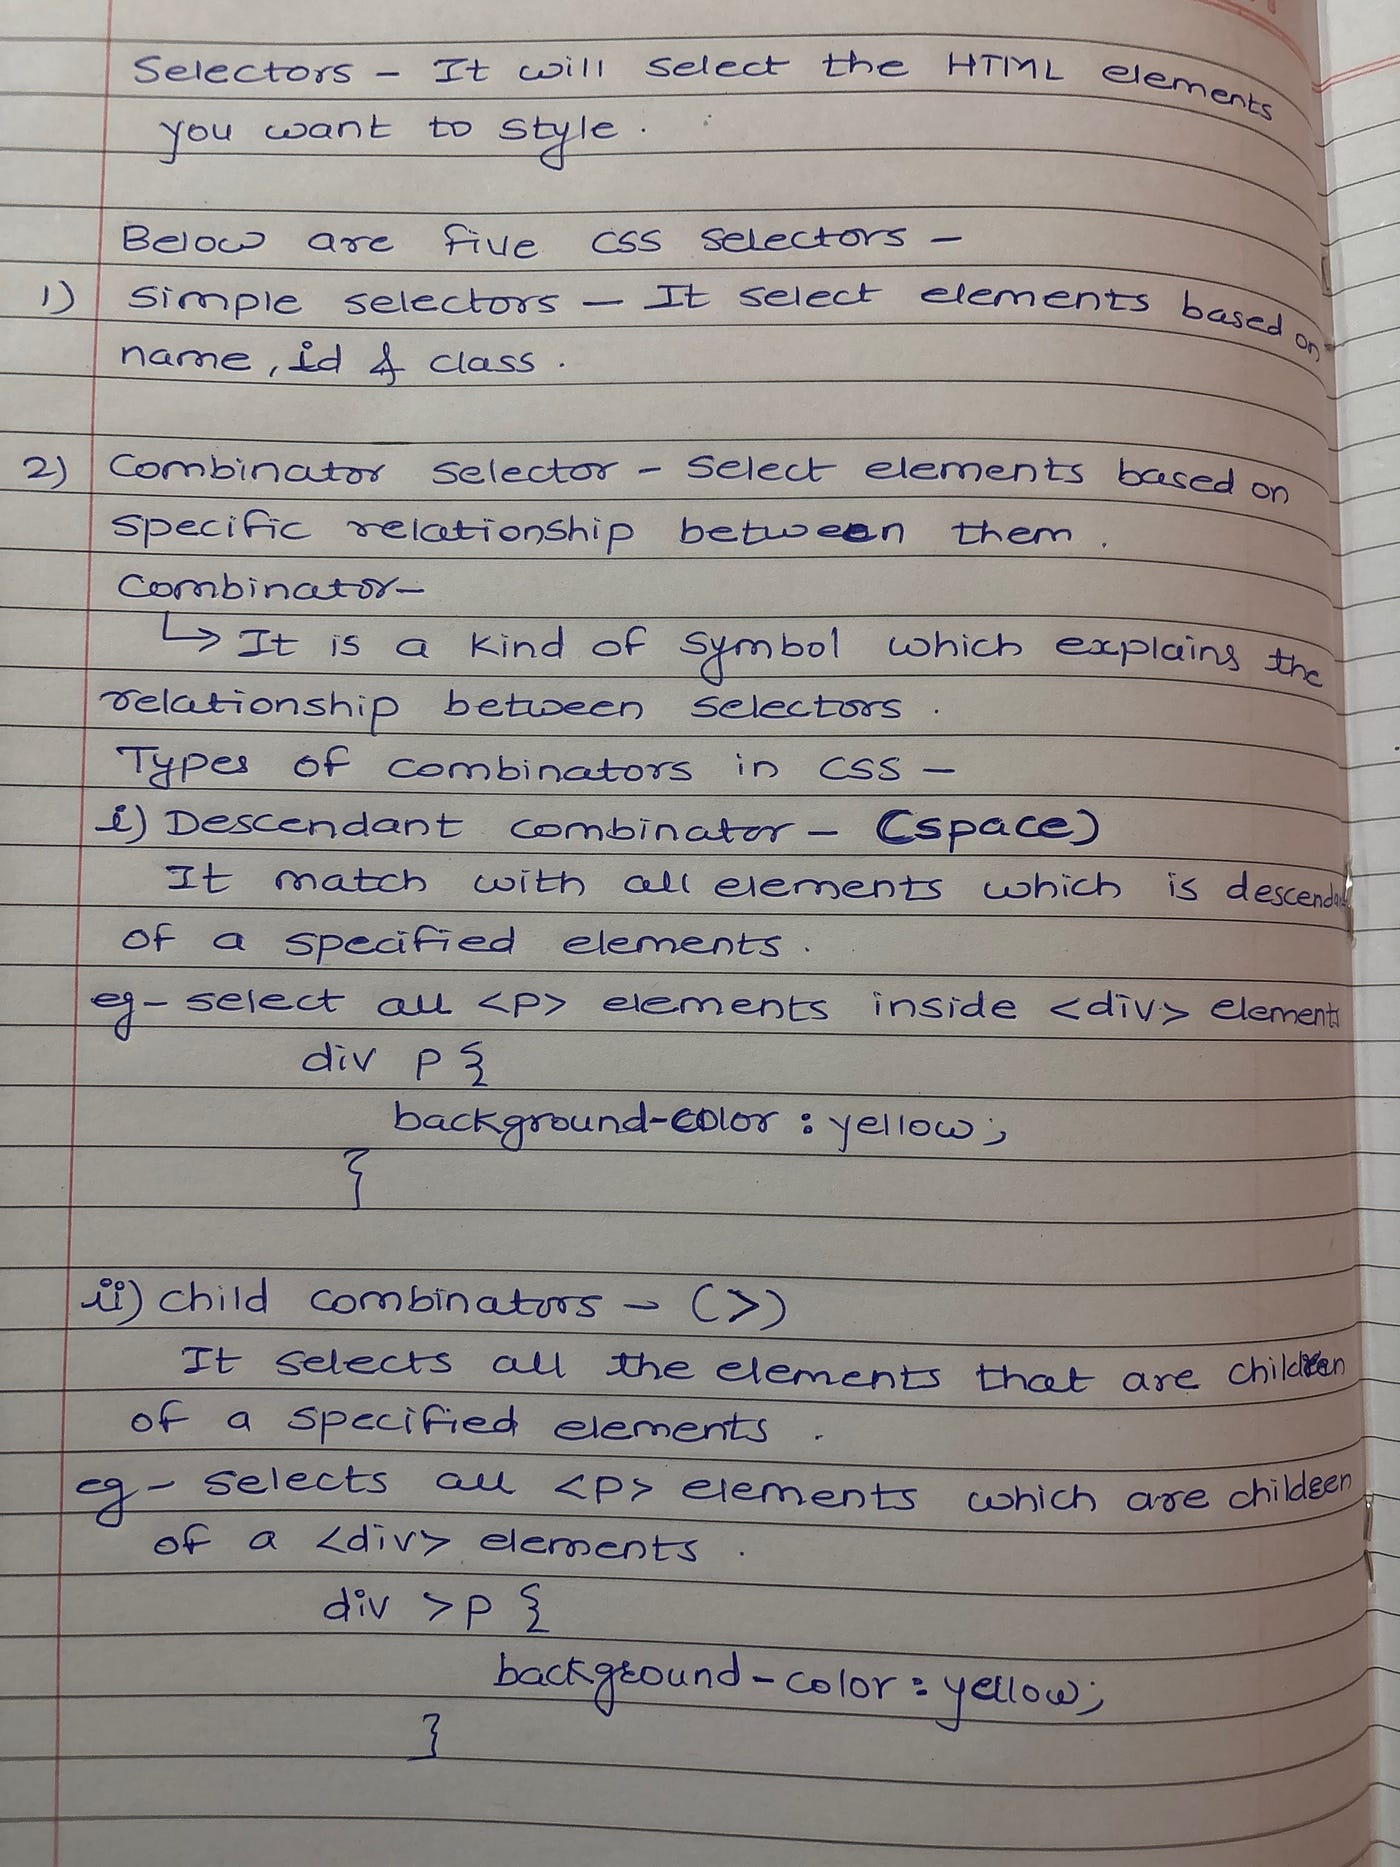 Selectors - It will select the HTML elements
you want to style.
Below are five CSS selectors -
1) Simple selectors - It select elements based on
name, id & class.
2) Combinator selector - Select elements based on
specific relationship between them.
Combinator-
↳ It is a kind of symbol which explains the
relationship between selectors.
Types of combinators in CSS -
i) Descendant combinator - (space)
It match with all elements which is
of a specified elements.
eg - select all <p> elements inside <div> elements
div p {
background-color : yellow;
}
ii) child combinators - (>)
It selects all the elements that are children
of a specified elements.
eg - selects all <p> elements which are children
of a <div> elements.
div >p {
background-color : yellow;
}